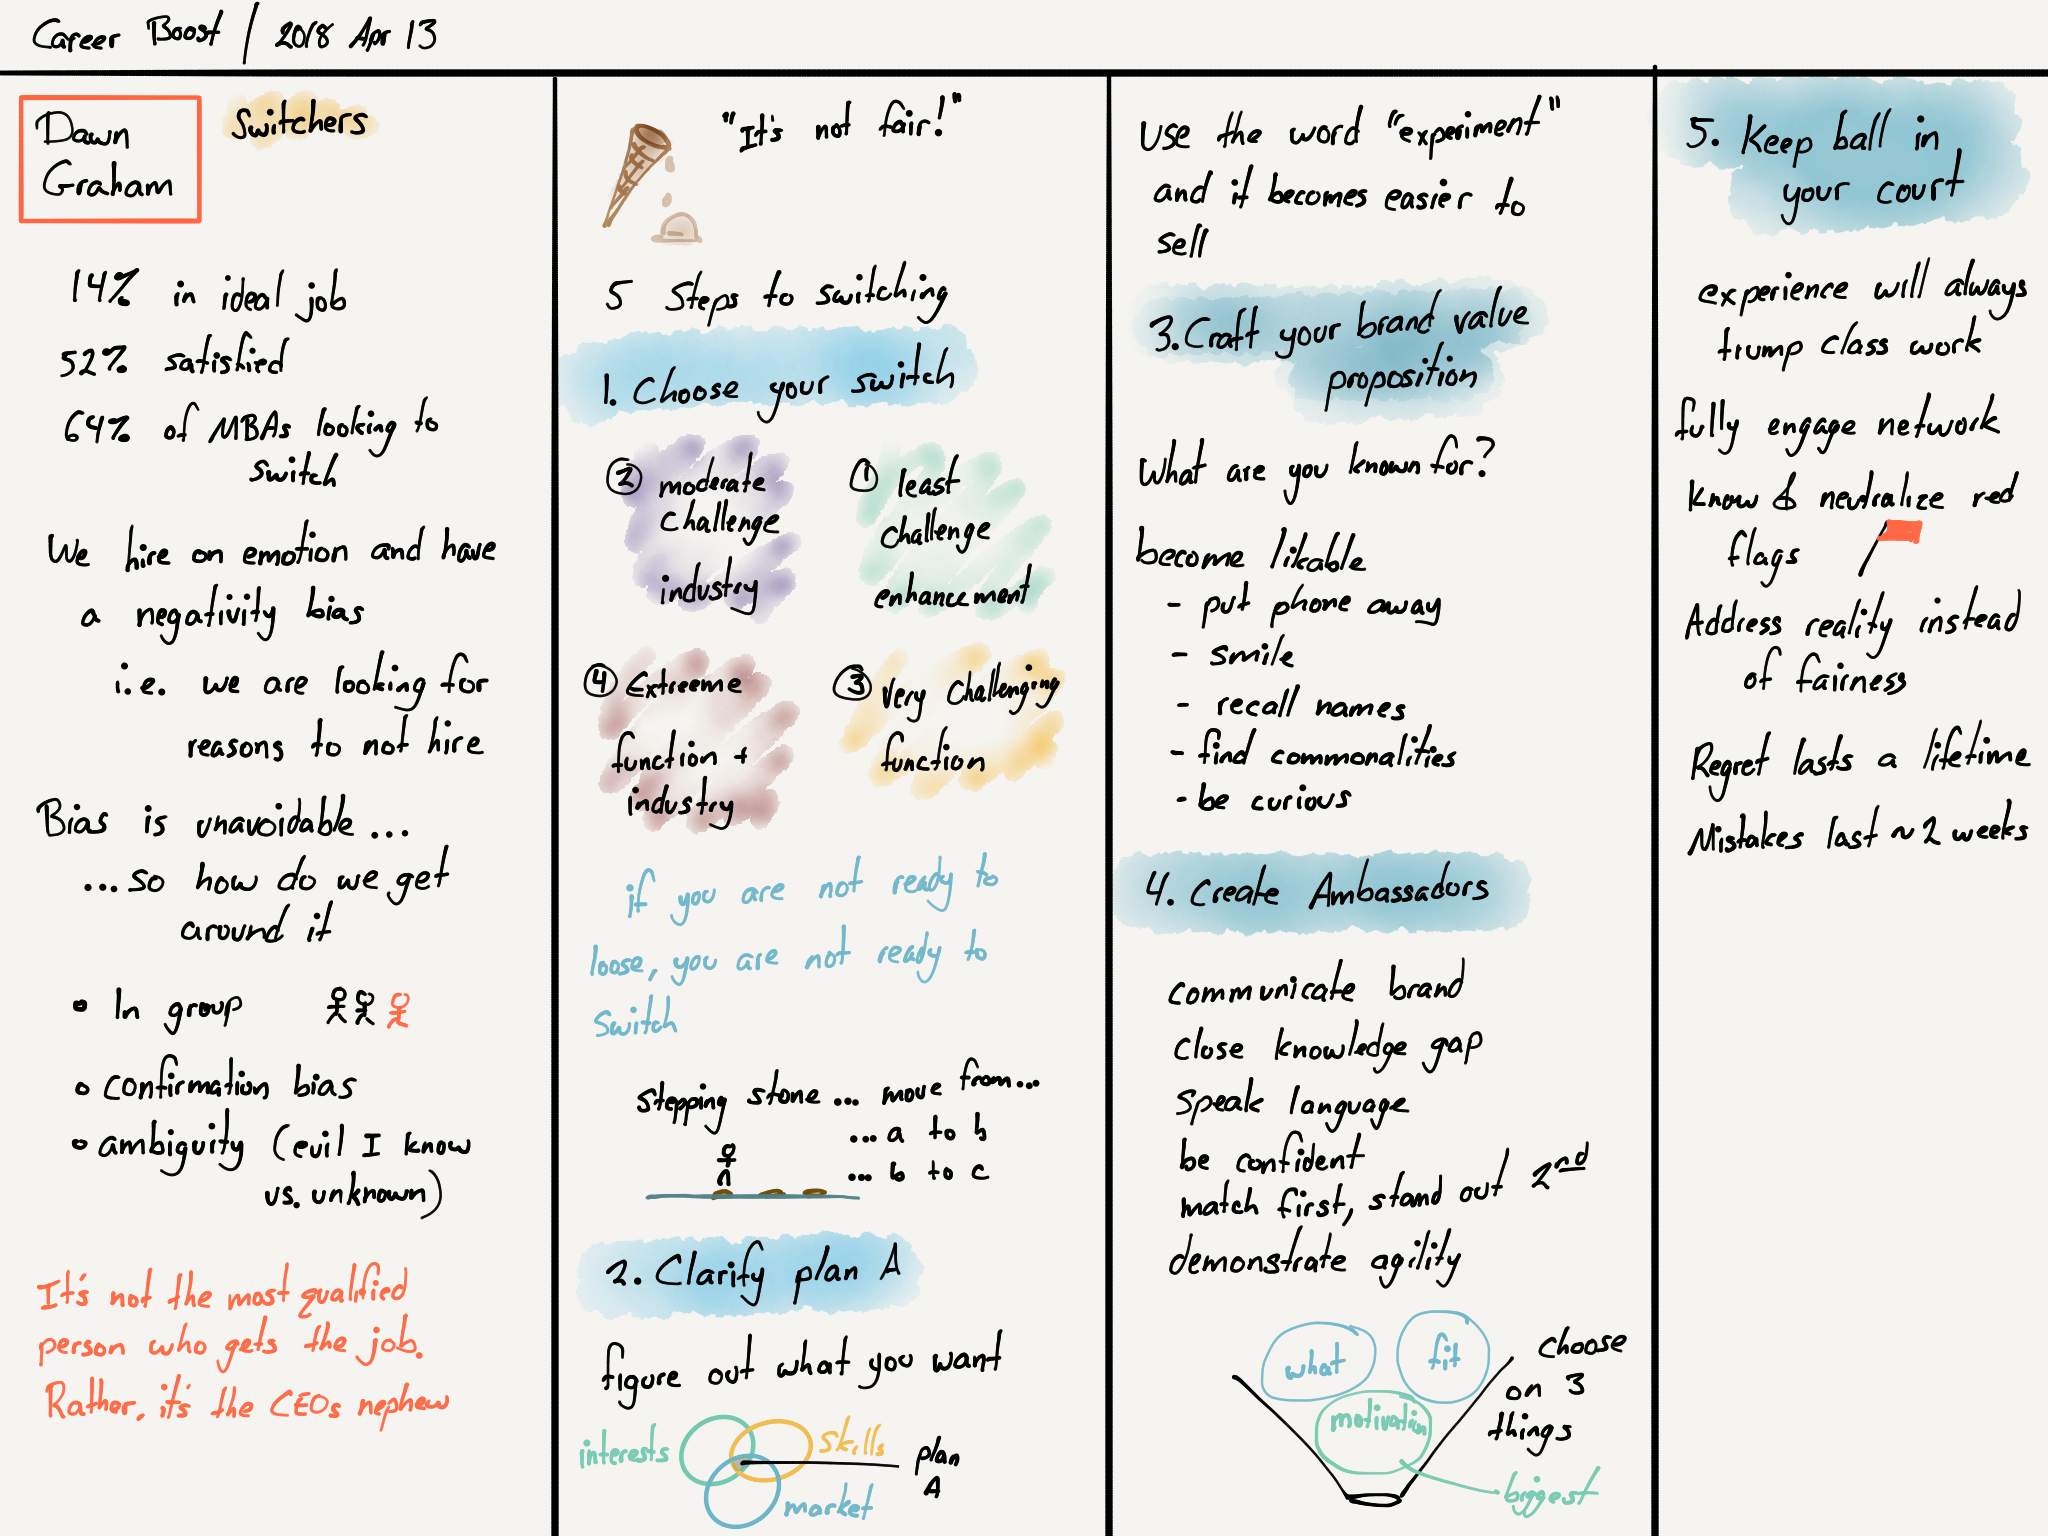 Career Boost / 2018 Apr 13
Dawn
Graham
Switchers
14% in ideal job
52% satisfied
64% of MBAs looking to
switch
We hire on emotion and have
a negativity bias
i.e. we are looking for
reasons to not hire
Bias is unavoidable...
...so how do we get
around it
• In group
• confirmation bias
• ambiguity (evil I know
vs. unknown)
It's not the most qualified
person who gets the job.
Rather, it's the CEOs nephew
"It's not fair!"
5 Steps to switching
1. Choose your switch
② moderate
challenge
industry
① least
challenge
enhancement
④ Extreeme
function +
industry
③ Very Challenging
function
if you are not ready to
loose, you are not ready to
switch
stepping stone... move from...
...a to b
...b to c
2. Clarify plan A
figure out what you want
interests
skills
market
plan
A
Use the word "experiment"
and it becomes easier to
sell
3. Craft your brand value
proposition
What are you known for?
become likable
- put phone away
- smile
- recall names
- find commonalities
- be curious
4. Create Ambassadors
communicate brand
close knowledge gap
speak language
be confident
match first, stand out 2nd
demonstrate agility
what
fit
motivation
choose
on 3
things
biggest
5. Keep ball in
your court
experience will always
trump class work
fully engage network
Know & neutralize red
flags
Address reality instead
of fairness
Regret lasts a lifetime
Mistakes last ~2 weeks